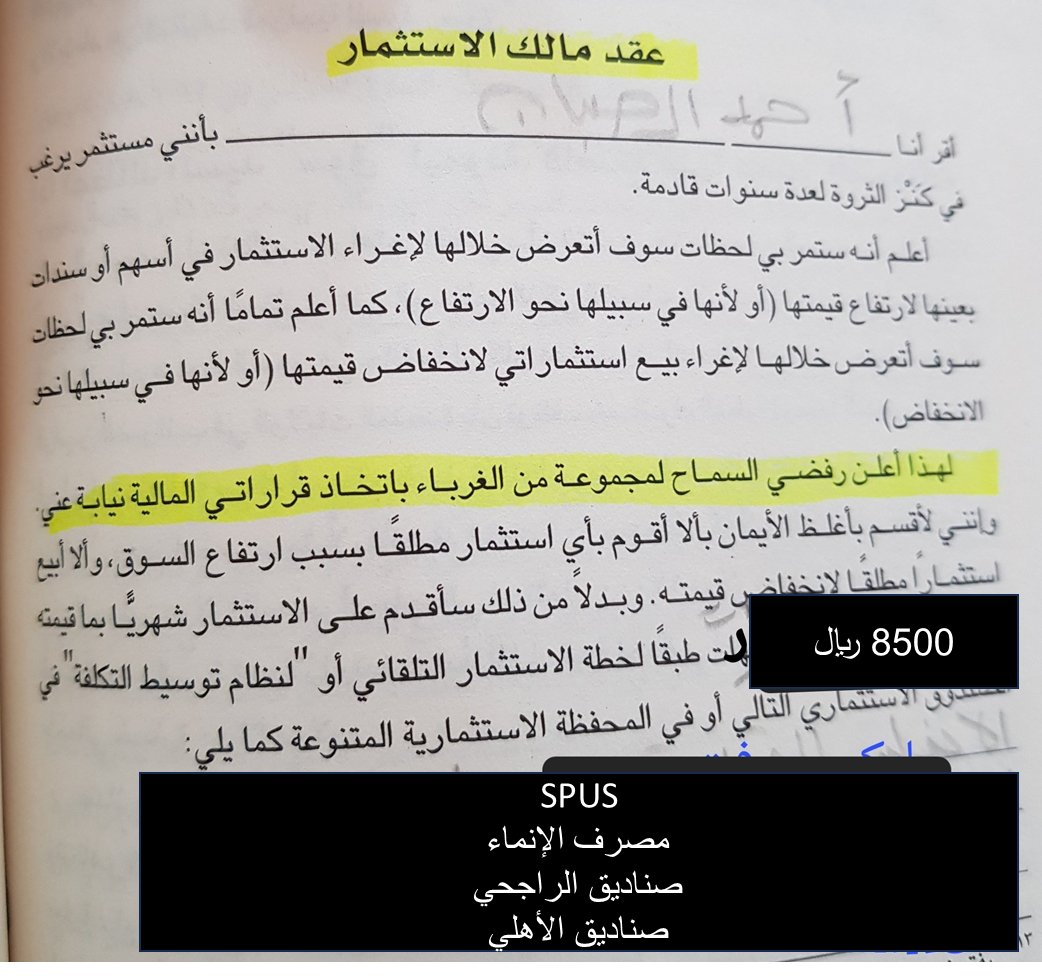 عقد مالك الاستثمار
أحمد
أقر أنا ــــــــــــــــــــــــــــ بأنني مستثمر يرغب
في كَنْز الثروة لعدة سنوات قادمة.
أعلم أنه ستمر بي لحظات سوف أتعرض خلالها لإغراء الاستثمار في أسهم أو سندات
بعينها لارتفاع قيمتها (أو لأنها في سبيلها نحو الارتفاع)، كما أعلم تمامًا أنه ستمر بي لحظات
سوف أتعرض خلالها لإغراء بيع استثماراتي لانخفاض قيمتها (أو لأنها في سبيلها نحو
الانخفاض).
لهذا أعلن رفضي السماح لمجموعة من الغرباء باتخاذ قراراتي المالية نيابة عني.
وإنني لأقسم بأغلظ الأيمان بألا أقوم بأي استثمار مطلقًا بسبب ارتفاع السوق، وألا أبيع
استثمارًا مطلقًا لانخفاض قيمته. وبدلاً من ذلك سأقدم على الاستثمار شهريًّا بما قيمته
8500 ريال
طبقًا لخطة الاستثمار التلقائي أو "لنظام توسيط التكلفة" في
الاستثماري التالي أو في المحفظة الاستثمارية المتنوعة كما يلي:
SPUS
مصرف الإنماء
صناديق الراجحي
صناديق الأهلي